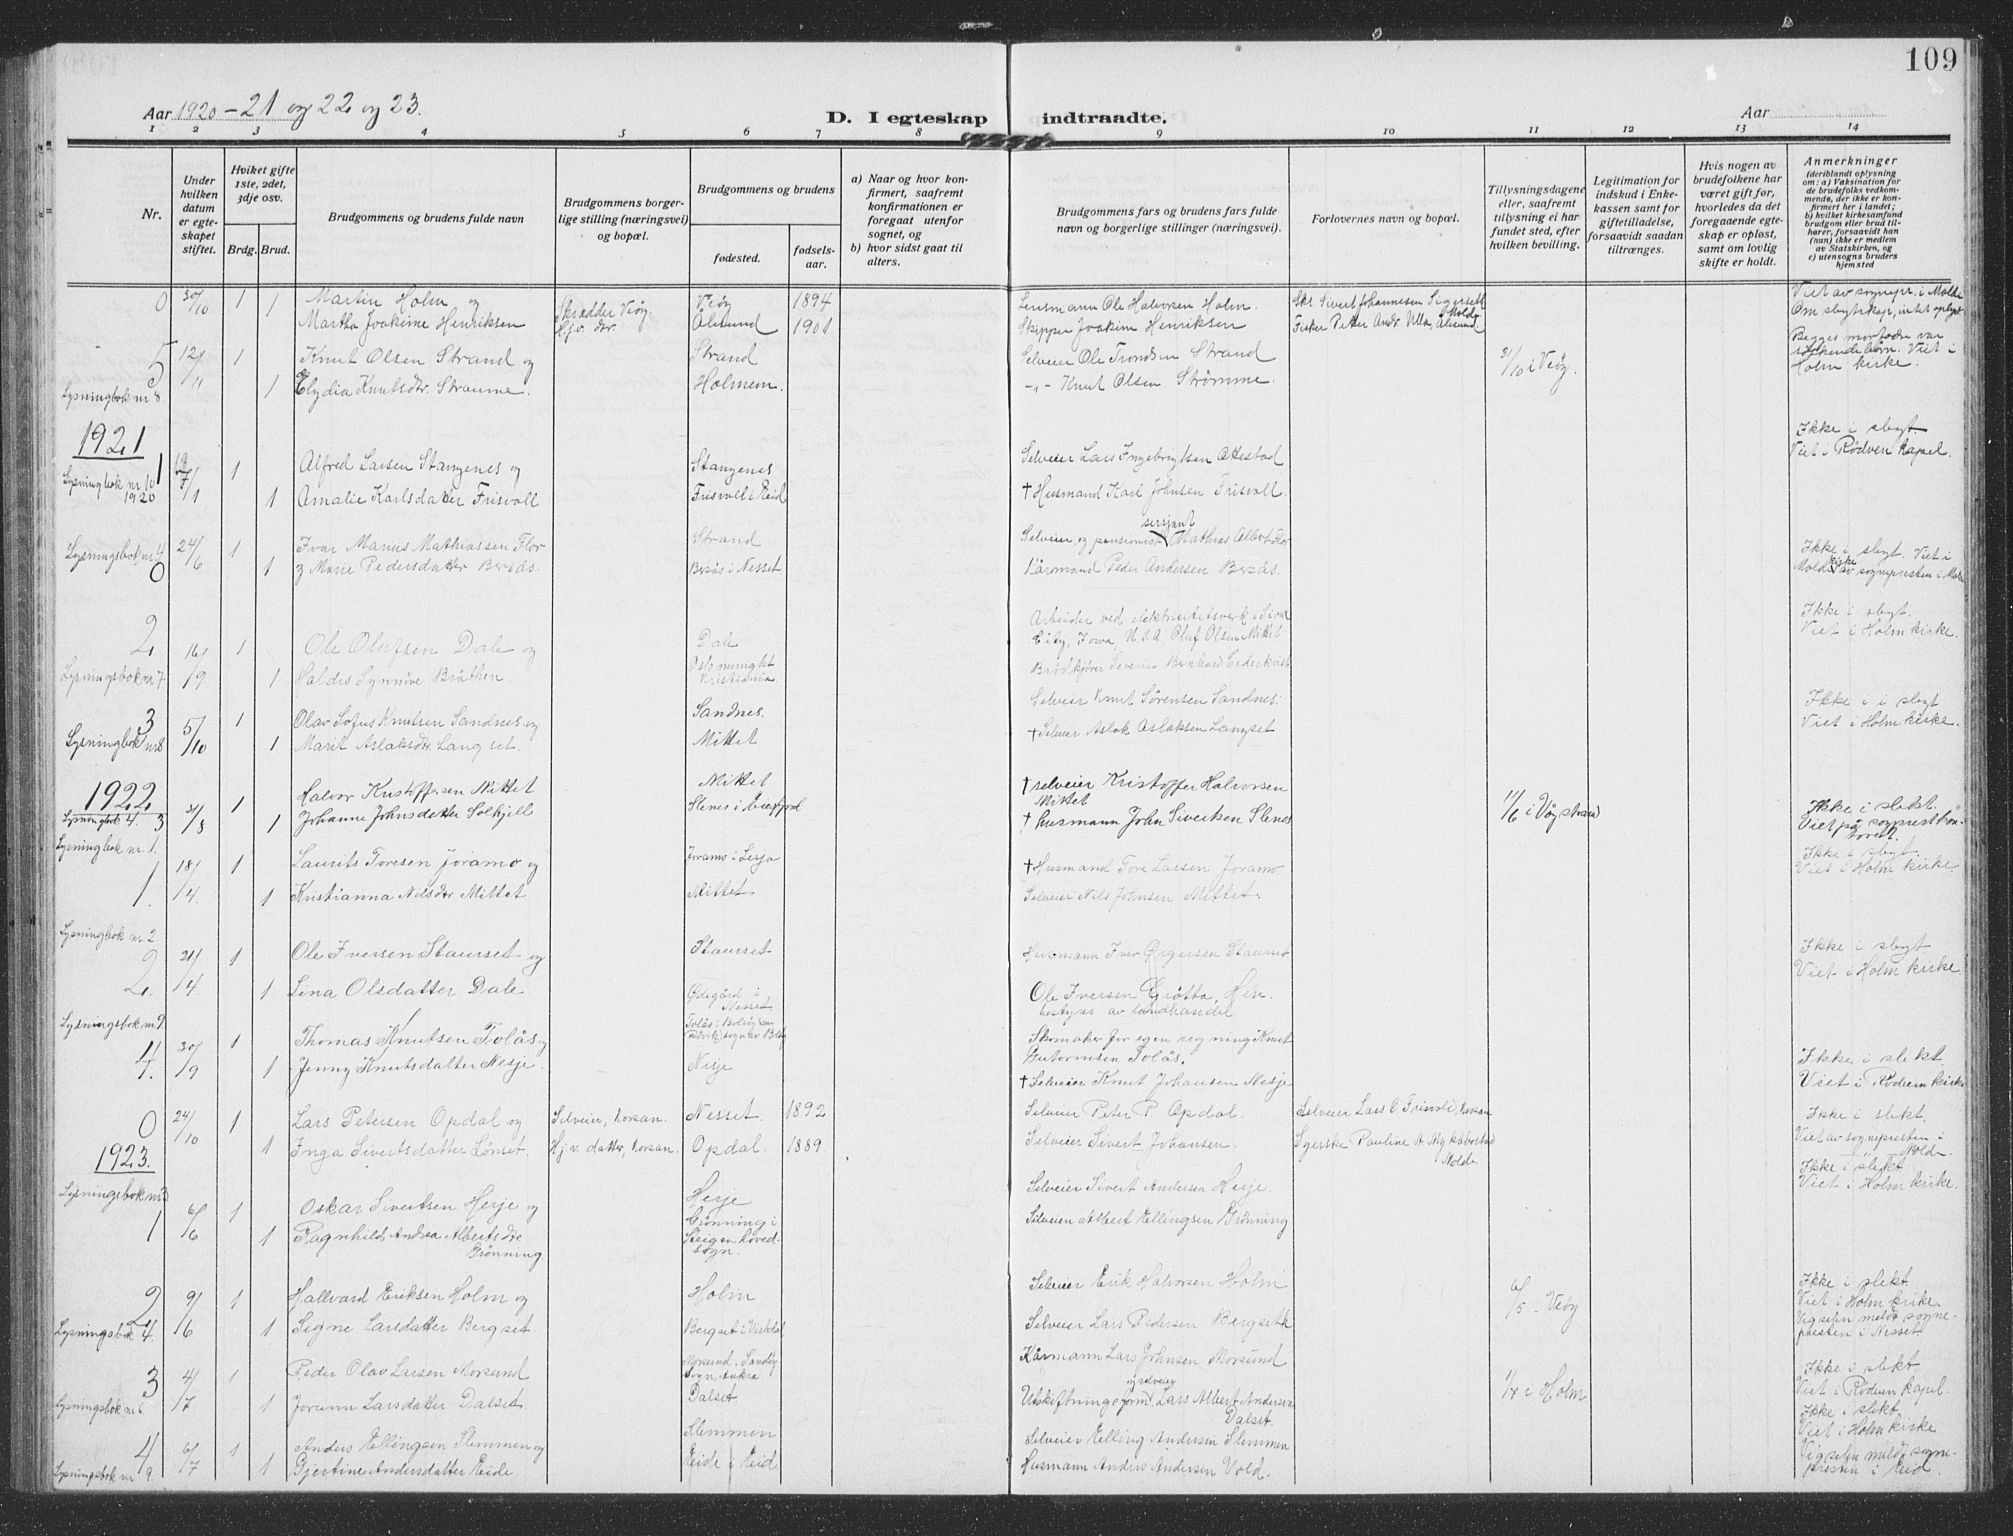 109
Aar 1920 - 21 og 22 og 23.
D. I egteskap indtraadte.
Aar
1 2 3 4 5 6 7 8 9 10 11 12 13 14
Nr.
Under hvilken datum er egteskapet stiftet.
Hvilket gifte 1ste, 2det, 3dje osv.
Brdg. Brud.
Brudgommens og brudens fulde navn
Brudgommens borgerlige stilling (næringsvei) og bopæl.
Brudgommens og brudens
fødested.
fødselsaar.
a) Naar og hvor konfirmert, saafremt konfirmationen er foregaat utenfor sognet, og
b) hvor sidst gaat til alters.
Brudgommens fars og brudens fars fulde navn og borgerlige stillinger (næringsvei).
Forlovernes navn og bopæl.
Tillysningsdagene eller, saafremt tillysning ei har fundet sted, efter hvilken bevilling.
Legitimation for indskud i Enkekassen samt for giftetilladelse, forsaavidt saadan tiltrænges.
Hvis nogen av brudefolkene har været gift før, hvorledes da det foregaaende egteskap er opløst, samt om lovlig skifte er holdt.
Anmerkninger
(deriblandt oplysning om: a) Vaksination for de brudefolks vedkommende, der ikke er konfirmert her i landet; b) hvilket kirkesamfund brudgom eller brud tilhører, forsaavidt han (hun) ikke er medlem av Statskirken, og c) utensogns bruders hjemsted
0 30/10 1 Martin Holm og Skrædder Veøy. Veøy 1894 Lensmann Ole Halvorsen Holm. Ekr. Sivert Johannesen Sigerset Molde Viet av sognepr. i Molde
1 Martha Joakime Henriksen Hj.v. dtr. Ålesund 1901 Skipper Joakim Henriksen Fisker Petter Andr. Ulla, Ålesund. Om slegtskap intet oplyst
5 12/11 1 Knut Olsen Strand og Strand Selveier Ole Trondsen Strand 31/10 i Veøy. Begges morfædre var søskendebørn. Viet i Holm kirke.
Lysningbok nr 8. 1 Elydia Knutsdtr. Straume. Holmem. -"- Knut Olsen Strømme.
1921
Lysningbok nr 10 1920 1 7/1 1 Alfred Larsen Stangenes og Stangenes Selveier Lars Ingebrigtsen Attestad Ikke i slegt.
1 Amalie Karlsdatter Frisvoll Frisvoll i Eid † Husmand Karl Johnsen Frisvoll. Viet i Rødven kapel.
Lysningsbok nr 4 0 24/6 1 Ivar Marius Mathiassen Flor Strand Selveier og pensionist sersjant Mathias Albert Flor Ikke i slegt. Viet i
1 Marie Pedersdatter Bersås. Bersås i Nesset Kårmand Peder Andersen Bersås. Molde kirke av sognepresten i Molde
2 16/9 1 Ole Olufsen Dale og Dale Arbeider ved elektricitetsverk i Sioux City, Iowa, U.S.A. Oluf Olsen Mittet Ikke i slegt.
Lysningsbok nr 7. 1 Haldis Synnøve Bråthen. Oslo menighet Kristiania Brødkjører Severin Bernhard Cederkvist Viet i Holm kirke.
3 5/10 1 Olav Sofus Knutsen Sandnes og Sandnes. Selveier Knut Sørensen Sandnes. Ikke i i slegt
Lysningbok nr 8 1 Marit Aslaksdtr. Langset. Mittet † Selveier Aslak Aslaksen Langset Viet i Holm kirke.
1922
Lysningbok 4. 3 31/8 1 Halvor Kristoffersen Mittet Mittet † selveier Kristoffer Halvorsen Mittet 11/6 i Vågstrand Ikke i slekt.
1 Johanne Johnsdatter Solhjell † husmann John Sivertsen Slenes Viet på sogneprestkontoret.
Lysningbok nr. 1.
1. 18/4. 1 Laurits Toresen Joramo og Joramo i Lesja † Husmand Tore Larsen Joramo Ikke i slegt
1 Kristianna Nilsdtr. Mittet Mittet Selveier Nils Johnsen Mittet. Viet i Holm kirke
Lysningbok nr. 2.
2. 21/4. 1 Ole Iversen Staurset og Staurset Husmann Iver Ørgersen Staurset Ikke i slegt
1 Lina Olsdatter Dale Ødegård i Nesset. Ole Iversen Grøtta, Hen. bestyrer av landhandel. Viet i Holm kirke
Lysningsbok nr. 9.
4. 30/9 1 Thomas Knutsen Tolås og Skomaker for egen regning Knut Gutormsen Tolås. Ikke i slekt
1 Jenny Knutsdatter Nesje. Nesje † Selveier Knut Johansen Nesje Viet i Rødven kirke
0 24/10 1 Lars Petersen Opdal og Selveier, Torsan. Nesset. 1892 Selveier Peter P. Opdal. Selveier Lars O Frisvold, Torsan Ikke i slekt.
1 Inga Sivertsdatter Lønset. Hj. v. datter, Torsan. Opdal. 1889. Selveier Sivert Johansen. Syerske Pauline A. Myklebostad Molde. Viet av sognepresten i Molde.
1923.
Lysningsbok nr 3
1 6/6 1 Oskar Sivertsen Hesje og Hesje Selveier Sivert Andersen Hesje. Ikke i slekt
1 Ragnhild Andrea Albertsdtr. Grønning Grønning i Steigen hovedsogn. Selveier Albert Ellingsen Grønning Viet i Holm kirke.
2 9/6 1 Hallvard Eriksen Holm og Holm Selveier Erik Halvorsen Holm 6/5 i Veøy Ikke i slekt
Lysningsbok 4. 1 Signe Larsdatter Bergset Bergset i Vistdal Selveier Lars Pedersen Bergseth Viet i Holm kirke. Vigselen meldt sognepresten i Nesset.
3 4/7 1 Peder Olav Larsen Morsund Morsund i Sandøy Sogn, Aukra Kårmann Lars Johnsen Morsund 1/7 i Holm Ikke i slekt
Lysningsbok nr 6. 1 Jorunn Larsdatter Dalset. Dalset. Utskiftningsform. og selveier Lars Albert Andersen Dalset. Viet i Rødven kapel.
4 6/7 1 Anders Ellingsen Slemmen og Slemmen Selveier Elling Andersen Slemmen Ikke i slekt Viet i Holm kirke
Lysningsbok nr 9. 1 Gjertine Andersdatter Eide. Eide i Eid Husmann Anders Andersen Vold. Vigselen meldt sognepresten i Eid.